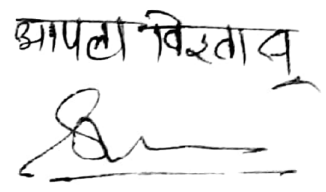 आपला विश्वासू